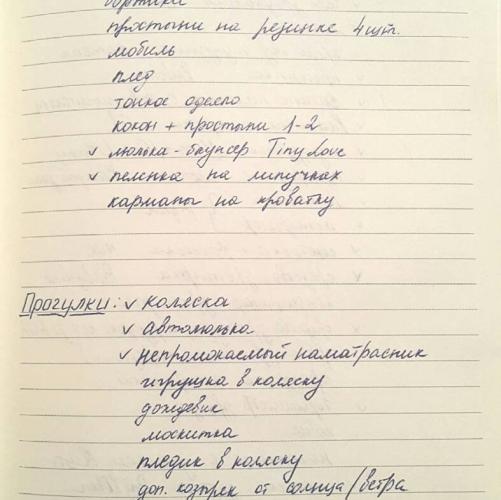 бортики
простыни на резинке 4 шт.
мобиль
плед
тонкое одеяло
кокон + простыни 1-2
✓ люлька-баунсер Tiny Love
✓ пеленка на липучках
карманы на кроватку
Прогулки: ✓ коляска
✓ автолюлька
✓ непромокаемый наматрасник
игрушка в коляску
дождевик
москитка
пледик в коляску
доп. козырек от солнца/ветра